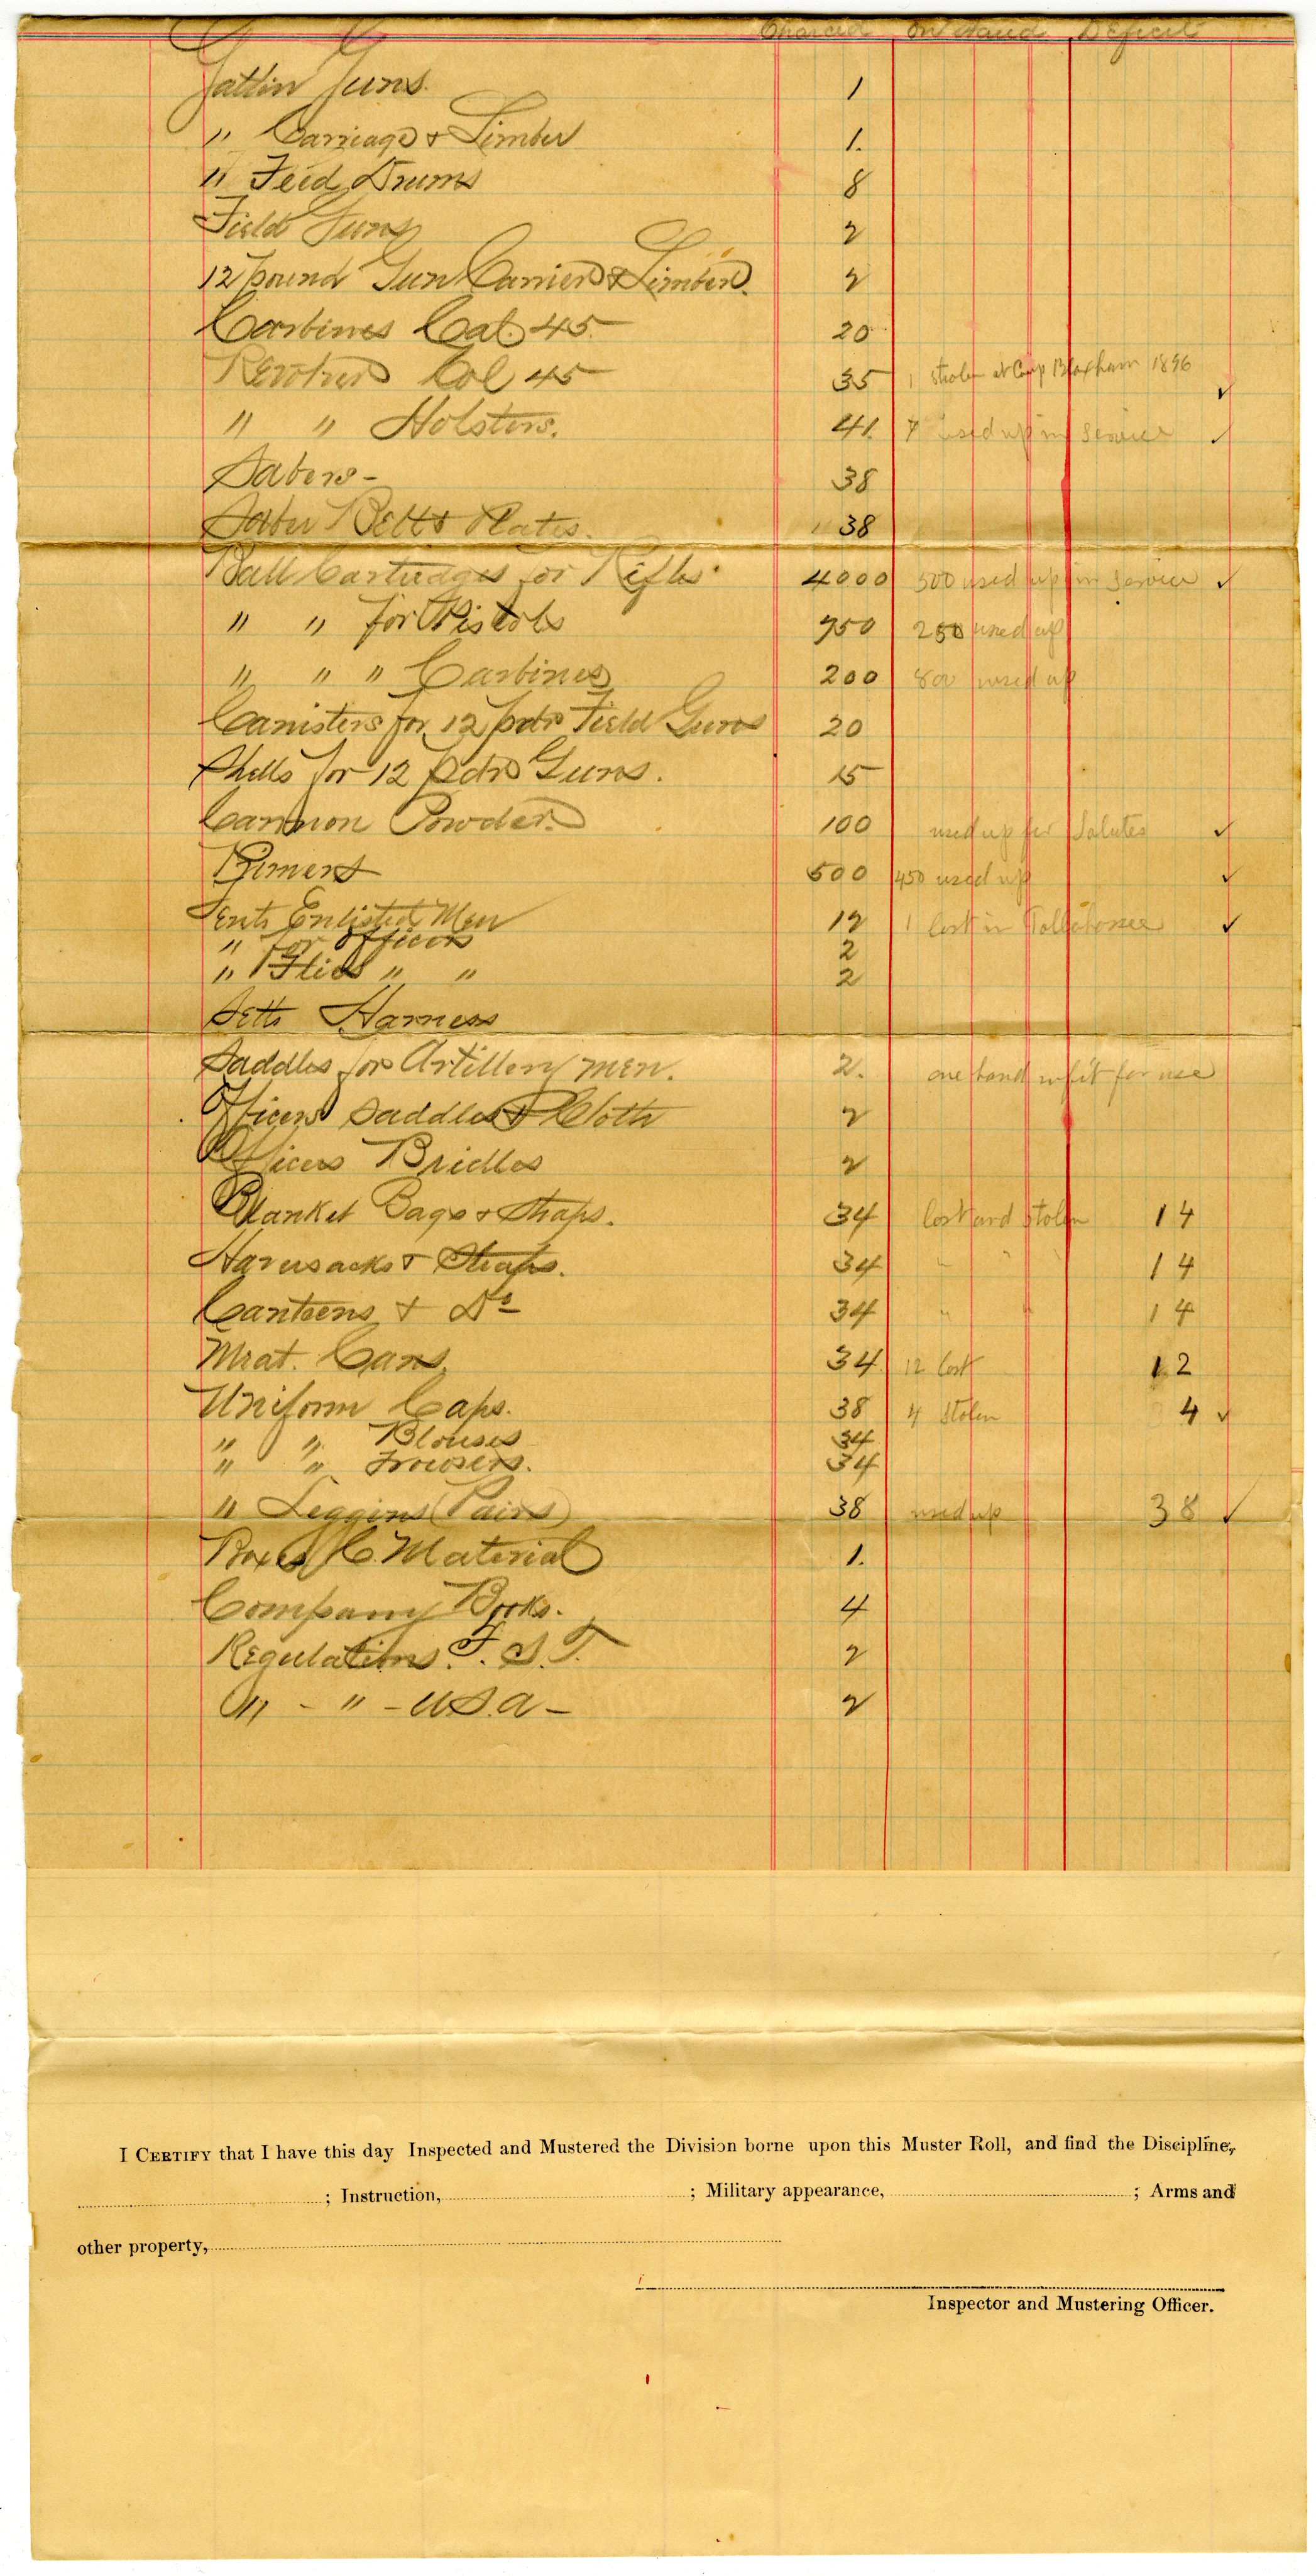 Charged On Hand Deficit
Gatlin Guns. 1
" Carriage & Limber 1.
" Feed Drums 8
Field Guns 2
12 pound Gun Carriers & Limbers. 2
Carbines Cal. 45 20
Revolvers Col 45 35 1 stolen at Camp Bloxham 1896 ✓
" " Holsters. 41. 7 used up in service ✓
Sabers - 38
Saber Belts & Plates. 38
Ball Cartridges for Rifles 4000 500 used up in service ✓
" " for Pistols 750 250 used up
" " " Carbines 200 800 used up
Canisters for 12 pdr Field Guns 20
Shells for 12 pdrs Guns. 15
Cannon Powder. 100 used up for Salutes ✓
Primers 500 450 used up ✓
Tents Enlisted Men 12 1 lost in Tallahassee ✓
" for Officers 2
" Flies " " 2
Setts Harness
Saddles for Artillery men. 2. one hand unfit for use
Officers Saddles & Cloth 2
Officers Bridles 2
Blanket Bags & Straps. 34 lost and stolen 14
Haversacks & Straps. 34 " " " 14
Canteens & Do 34 " " 14
Meat. Cans. 34 12 lost 12
Uniform Caps. 38 4 stolen 4 ✓
" " Blouses 34
" " Trousers. 34
" Leggins (Pairs) 38 used up 38 ✓
Boxes C. Material 1.
Company Books. 4
Regulations. F. S. T. 2
" - " - U.S.A - 2
I CERTIFY that I have this day Inspected and Mustered the Division borne upon this Muster Roll, and find the Discipline,
; Instruction, ; Military appearance, ; Arms and
other property,
Inspector and Mustering Officer.